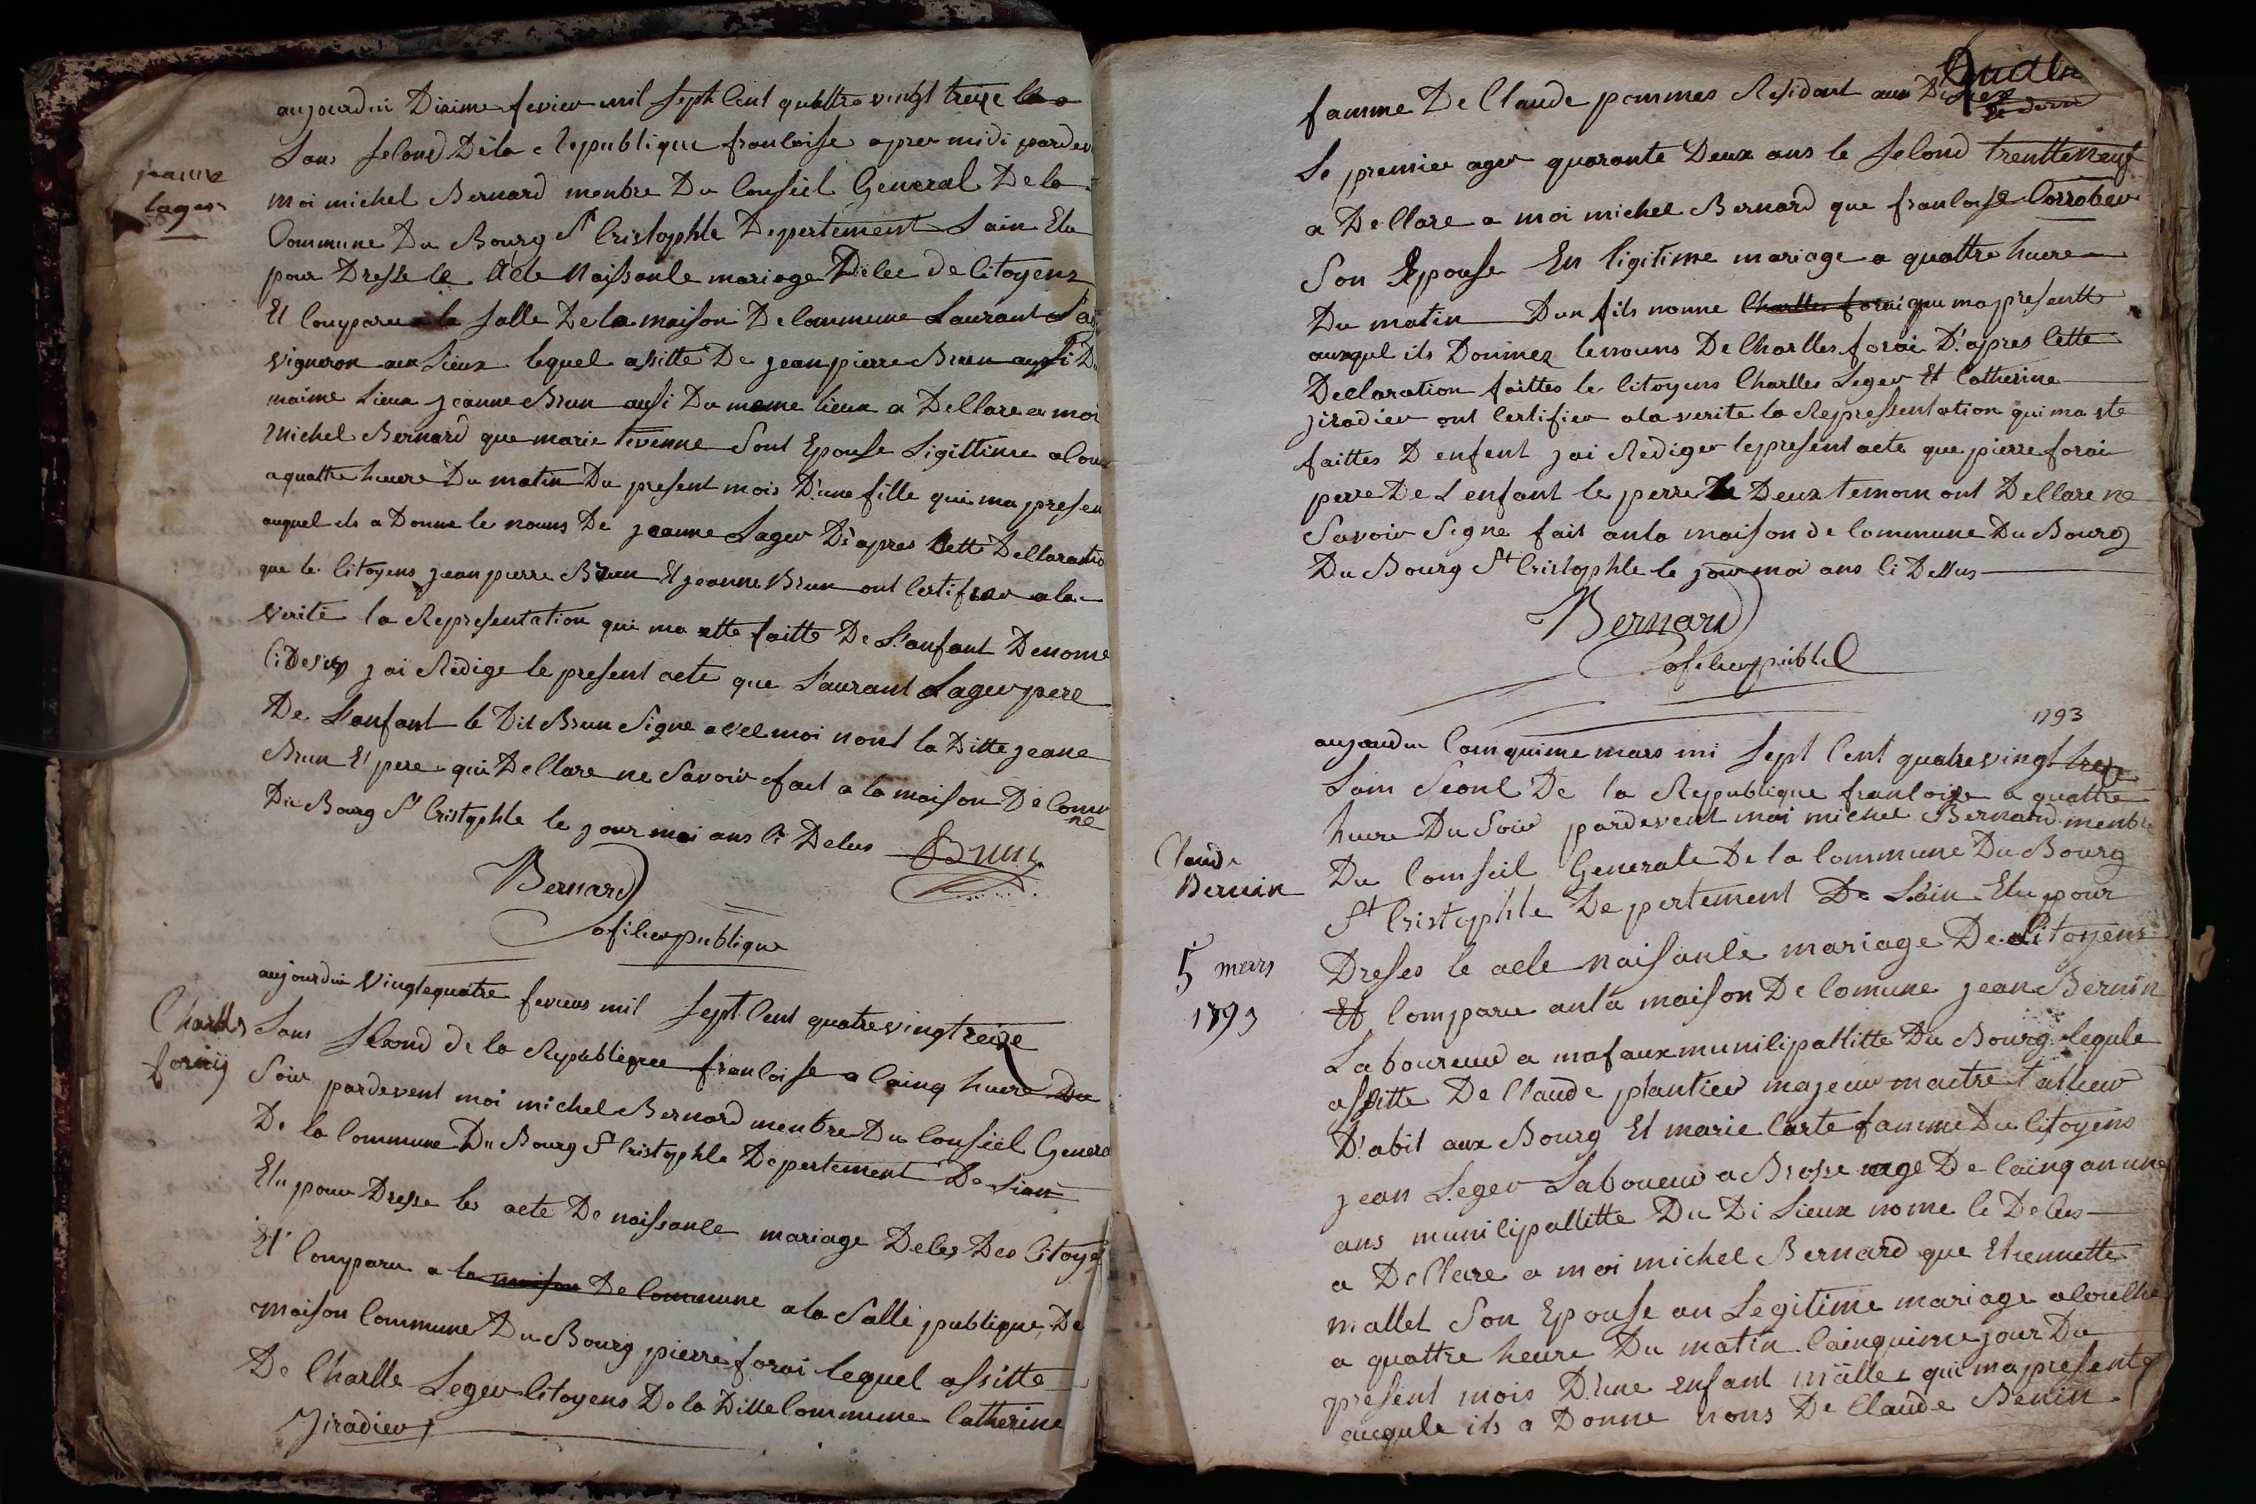 jeanne
lager
aujourdui Dixime fevier mil sept Cent quattre vingt treize
Lans second Dela Republique francoise apres midi pardev
moi michel Bernard menbre Du Conseil General De la
Commune Du Bourg St Cristophle Depertement Lain Elu
pour Dresse le Acte Naissance mariage Dilee de Citoyens
Et Comparu a la salle De la maison De Commune Laurant Lag
vigneron aux Lieux lequel assitte De jean pierre Brun aussi D
maime Lieux jeanne Brun aussi Du mesme lieux a Dellare a moi
Michel Bernard que marie tevenne Sont Epouse Ligittime a Cou
a quattre heure Du matin Du present mois D'une fille qui ma presen
auquel ils a Donne le nouns De jeanne Lager D'apres Cette Dellaratio
que le Citoyens jean pierre Brun Et jeanne Brun ont Certifier a la
verite la Representation qui ma ette faitte De L'anfant Denome
Ci Desus jai Redige le present acte que Laurant Lager pere
De L'anfant le Dit Brun Signe avec moi nont la Ditte jeane
Brun Et pere qui Dellare ne Savoir fait a la maison De Comu
ne
Du Bourg St Cristophle le jour moi ans Ci Delus Brun
Bernard
oficier publique
Charlles
foraij
aujourdui vingtequatre fevrier mil sept Cent quatrevingtreize
Lans second de la Republique francoise a Cainq heure Du
Soir pardevent moi michel Bernard menbre Du Consiel Genera
De la Commune Du Bourg St Cristophle Depertement De Lain
Elu pour Dresse les acte De naissance mariage Deles Des Citoye
Et Comparu a la maison De Commune a la Salle publique De
maison Commune Du Bourg pierre forai lequel assitte
De Charlle Leger Citoyens De la Ditte Commune Catherine
Jiradier
famme De Claude pommes Residant aux Di
Le premier ager quarante Deux ans le second trentteneuf
a Dellare a moi michel Bernard que francoise Corrober
Son Epouse En ligitime mariage a quattre heure
Du matin Dun fils nonne Charlles forai qui ma presentte
auxqul ils Donnez le nouns De Charlles forai D'apres Cette
Declaration faittes le Citoyens Charlles Leger Et Catherine
jiradier ont Certifier a la verite la Repressentation qui ma ete
faittes D enfent jai Rediger le present acte que pierre forai
perre De L enfent le perre De Deux temoin ont Dellare ne
Savoir Signe fait anla maison de Commune Du Bourg
Du Bourg St Cristophle le jour moi ans Ci Dessus
Bernard
oficier publicl
1793
Claude
Bernin
5 mars
1793
aujourdui Cainquime mars mi sept Cent quatre vingt treze
Lain Seont De la Republique francoize a quattre
heure Du Soir pardevent moi michel Bernard menbre
Du Comseil Generale De la Commune Du Bourg
St Cristophle Depertement De Lain Elu pour
Dreses le acte naisance mariage De Citoyens
Et Comparu anla maison De Comune jean Bernin
Laboureur a mafaux municipallitte Du Bourg lequle
assitte De Claude plantier majeur maitre tallieur
D'abit aux Bourg Et marie Carte famme Du Citoyens
jean Leger Laboueur a Brosse age De Cainqanune
ans municipallitte Du Di Lieux nome Ci Delus
a Dellare a moi michel Bernard que Etiennette
mallet Son Epouse an Legitime mariage acouche
a quattre heure Du matin Cainquime jour Du
present mois D'une enfant mälle qui ma presente
auqule ils a Donne nons De Claude Benin